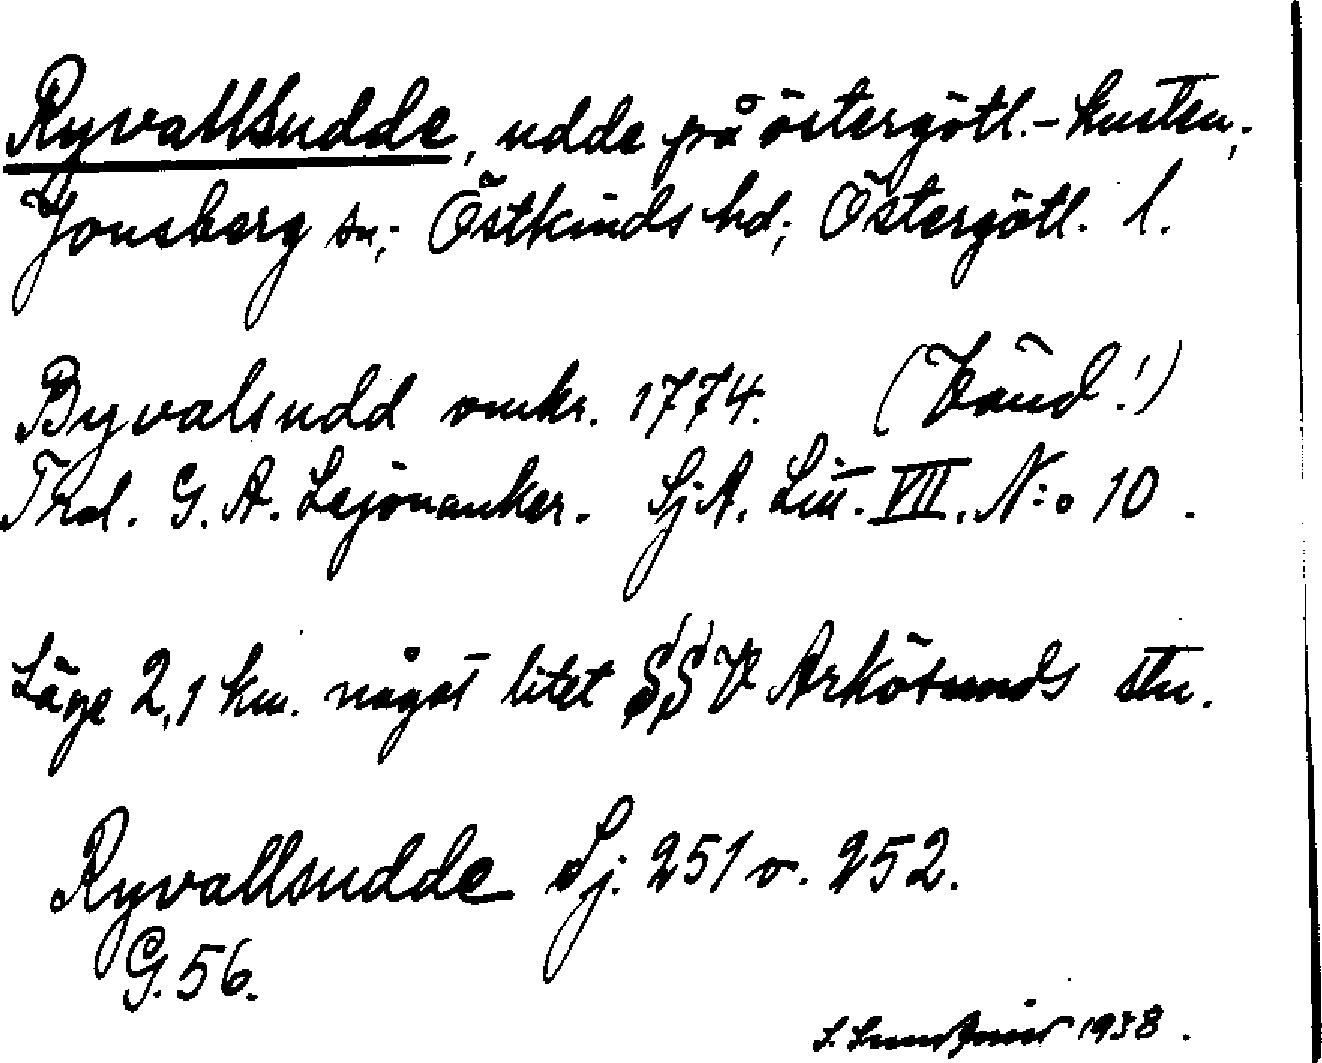 Ryvallsudde, udde på östergötl.-kusten;
Jonsberg sn; Östkinds hd; Östergötl. l.
Byvalsudd omkr. 1774. (Känd!)
Thol. G. A. Lejonanker. Sj A. Litt. VII. N:o 10.
Läge 2,1 km. något litet SSV Arkösunds stn.
Ryvallsudde Sj. 251 o. 252.
G. 56.
S. 1938.